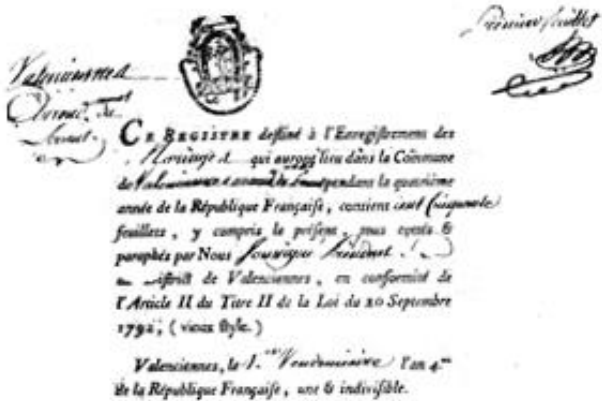 premier feuillet
Valenciennes
CE REGISTRE destiné à l'Enregistrement des
Mariages qui auront lieu dans la Commune
de Valenciennes pendant la quatrième
année de la République Française, contient cent cinquante
feuillets, y compris le présent, tous cotés &
paraphés par Nous
District de Valenciennes, en conformité de
l'Article II du Titre II de la Loi du 20 Septembre
1792, (vieux style.)
Valenciennes, le 1.er Vendemiaire l'an 4.me
de la République Française, une & indivisible.